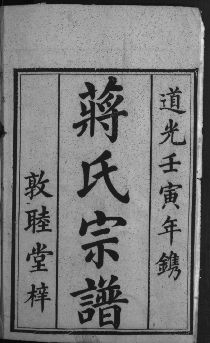 道光壬寅年鐫
蔣氏宗譜
敦睦堂梓